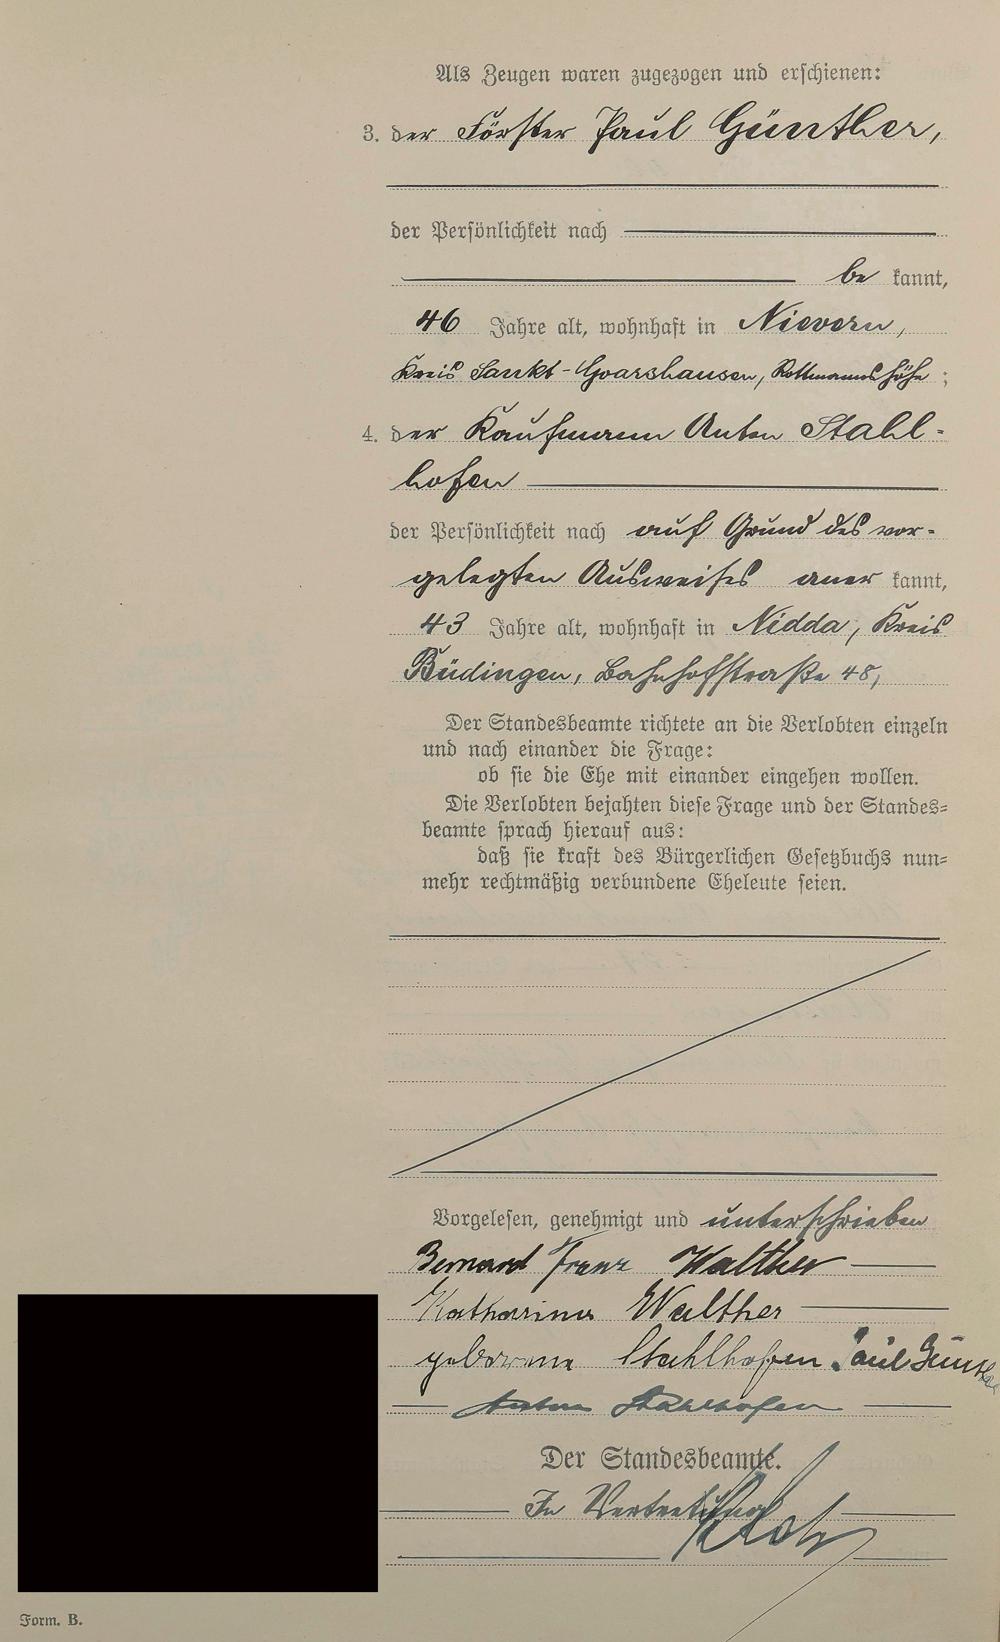 Als Zeugen waren zugezogen und erschienen:
3. der Förster Paul Günther,
der Persönlichkeit nach
be kannt,
46 Jahre alt, wohnhaft in Nievern,
Kreis Sankt-Goarshausen, Rottmannshöhe;
4. der Kaufmann Anton Stahl-
hofen
der Persönlichkeit nach auf Grund des vor-
gelegten Ausweises aner kannt,
43 Jahre alt, wohnhaft in Nidda, Kreis
Büdingen, Bahnhofstraße 48,
Der Standesbeamte richtete an die Verlobten einzeln
und nach einander die Frage:
ob sie die Ehe mit einander eingehen wollen.
Die Verlobten bejahten diese Frage und der Standes-
beamte sprach hierauf aus:
daß sie kraft des Bürgerlichen Gesetzbuchs nun-
mehr rechtmäßig verbundene Eheleute seien.
Vorgelesen, genehmigt und unterschrieben
Bernard Franz Walther
Katharina Walther
geborene Stahlhofen Paul Günther
Anton Stahlhofen
Der Standesbeamte.
In Vertretung
Form. B.